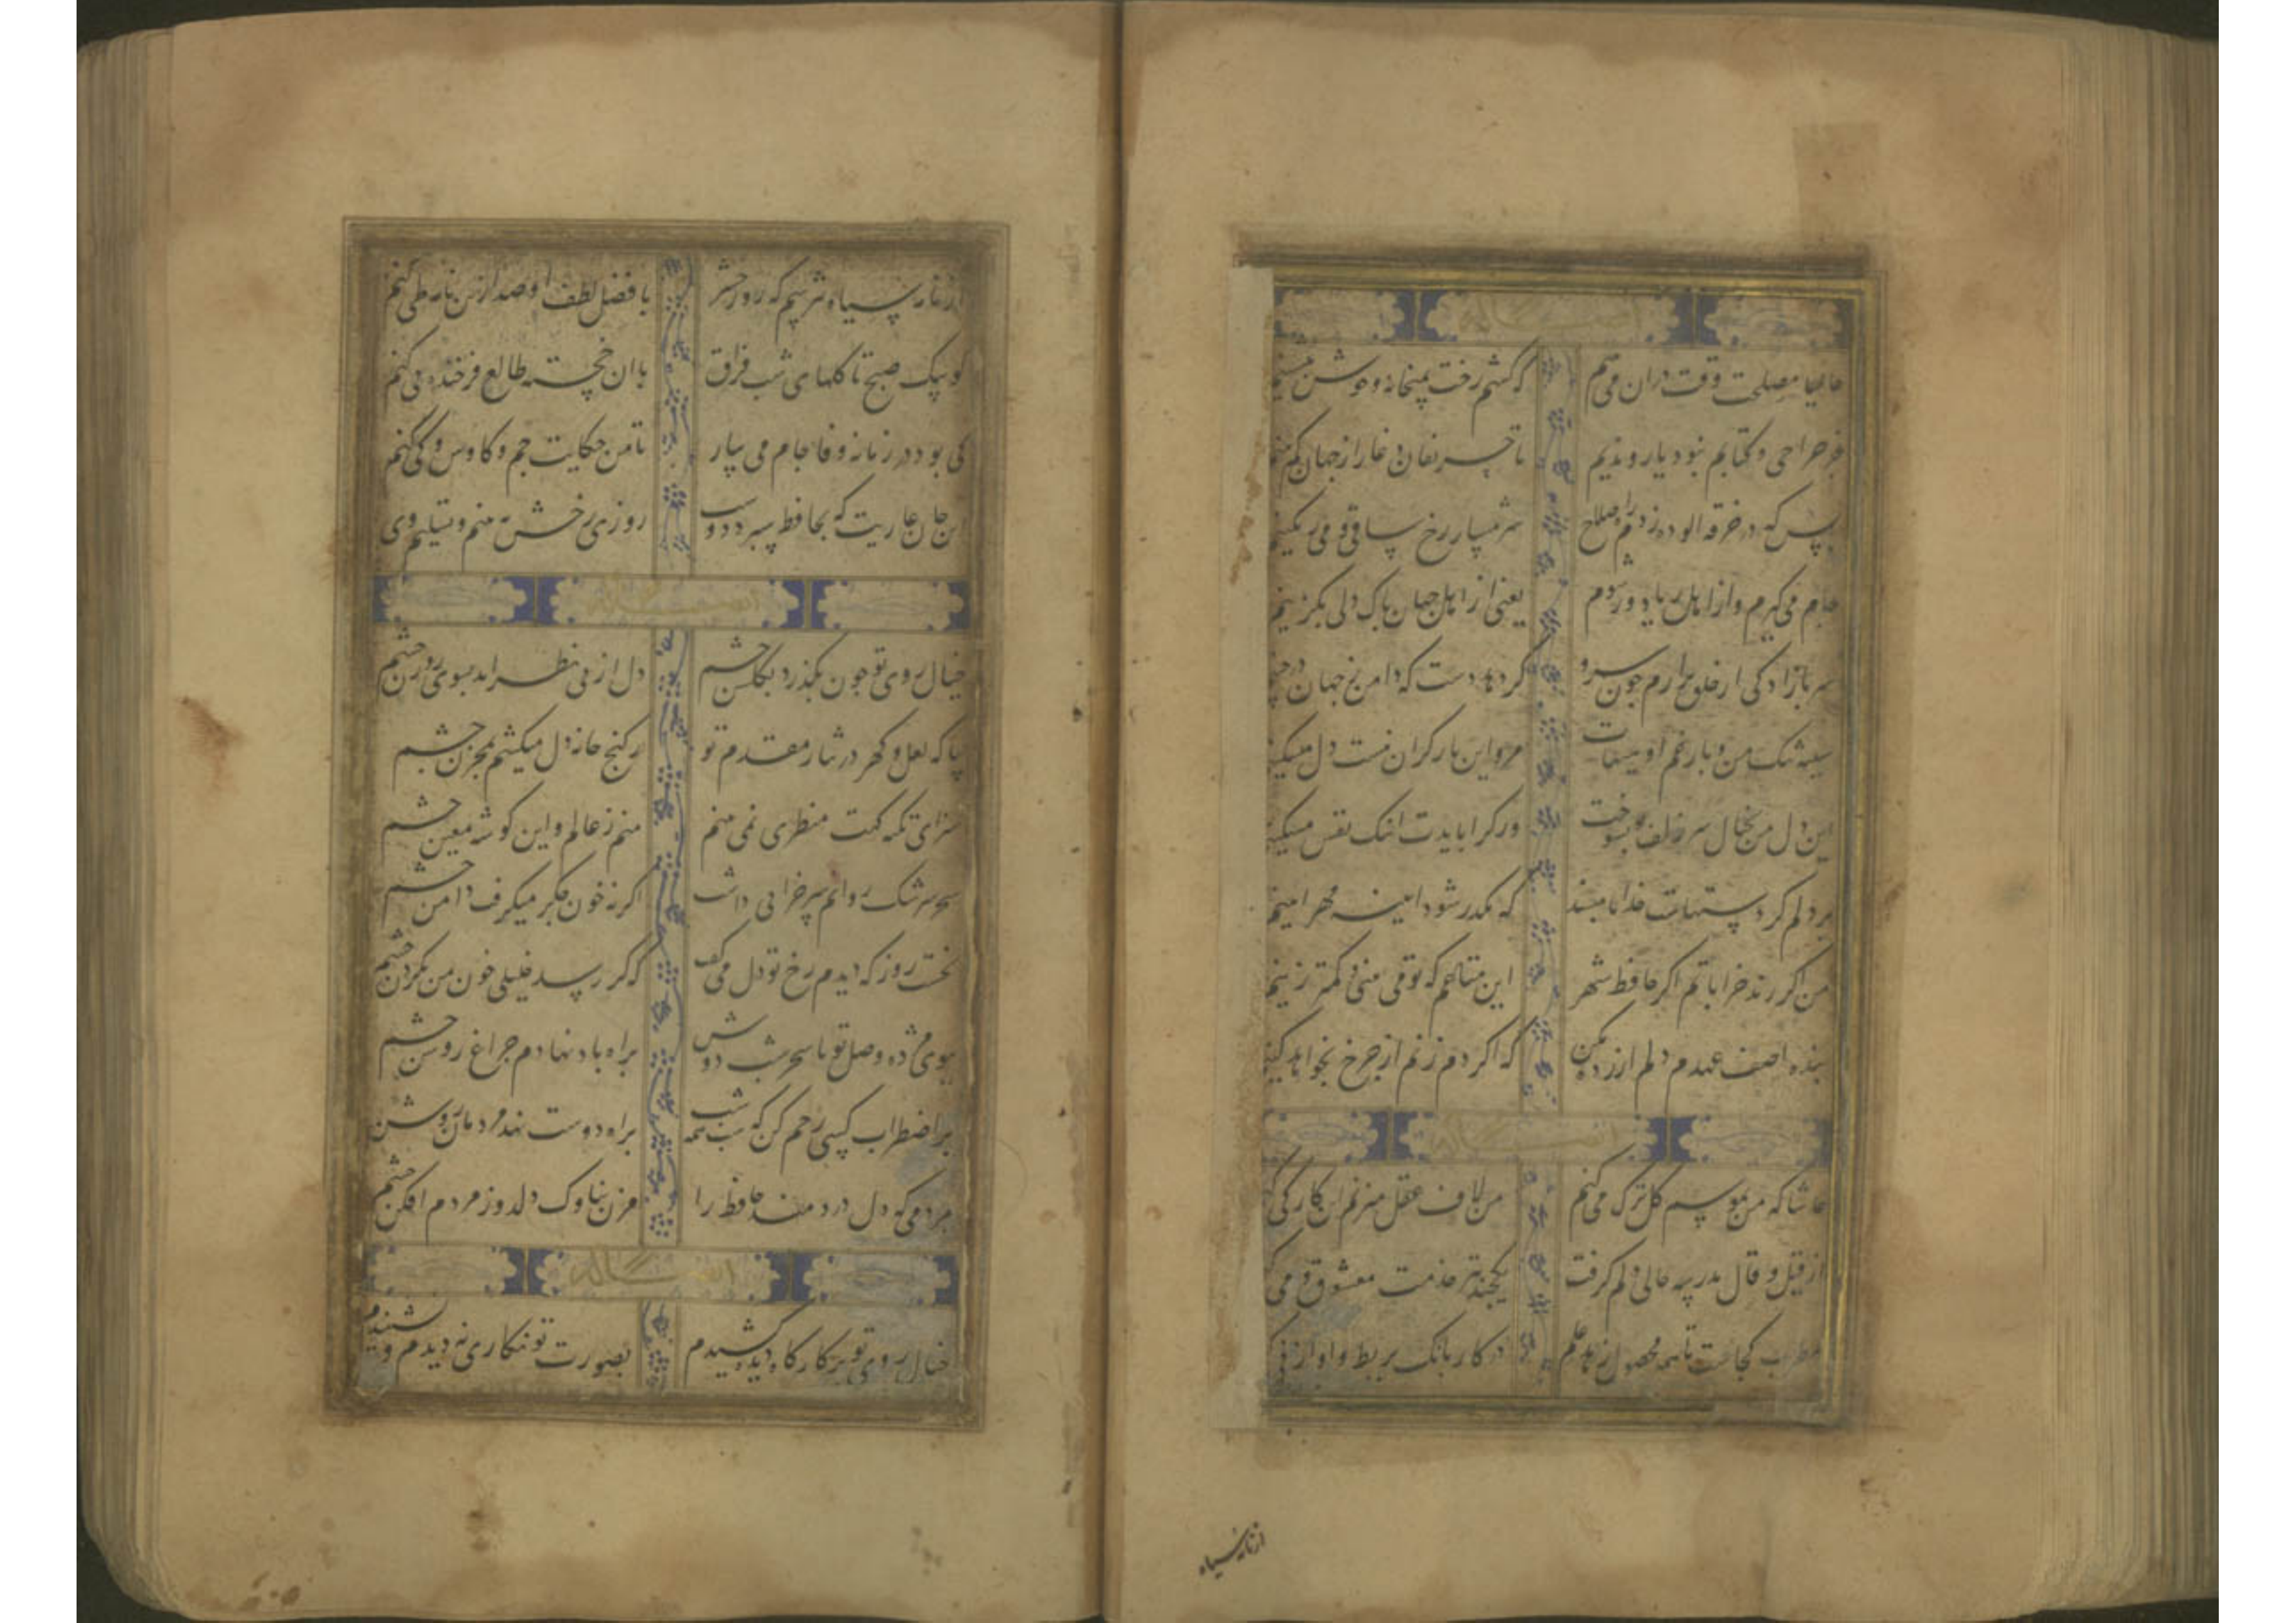 حالیا مصلحت وقت دران می بینم که کشم رخت بمیخانه و خوش بنشینم
جز صراحی و کتابم نبود یار و ندیم تا حریفان دغا را ز جهان کم بینم
بس که در خرقه الوده زدم لاف صلاح شرمسار رخ ساقی و می رنگینم
جام می گیرم و از اهل ریا دور شوم یعنی از اهل جهان پاک دلی بگزینم
سر بازادکی از خلق برارم چون سرو گر دهد دست که دامن ز جهان درچینم
سینه تنک من و بار غم او هیهات مرد این بار گران نیست دل مسکینم
این دل من بخیال سر زلفت بسوخت
بر دلم گرد ستمهاست خدایا مپسند که مکدر شود ایینه مهر ایینم
من گر رند خراباتم اگر حافظ شهر این متاعم که تو می بینی و کمتر زینم
بنده اصف عهدم دلم از راه مبر که اگر دم زنم از چرخ بخواهد کینم
حاشا که من بموسم گل ترک می کنم من لاف عقل میزنم این کار کی کنم
از قیل و قال مدرسه حالی دلم گرفت یکچند نیز خدمت معشوق و می کنم
مطرب کجاست تا همه محصول زهد و علم در کار بانک بربط و اواز نی کنم
از نامه سیاه
از نامه سیاه نترسم که روز حشر با فضل لطف او صد ازین نامه طی کنم
کو پیک صبح تا گلهای شب فراق با ان خجسته طالع فرخنده پی کنم
کی بود در زمانه وفا جام می بیار تا من حکایت جم و کاوس و کی کنم
این جان عاریت که بحافظ سپرد دوست روزی رخش به بینم و تسلیم وی
خیال روی تو چون بگذرد بگلشن چشم دل از پی نظر اید بسوی روزن چشم
بیا که لعل و گهر در نثار مقدم تو ز گنج خانه دل میکشم بمخزن چشم
سزای تکیه گهت منظری نمی بینم منم ز عالم و این گوشه معین چشم
سحر سرشک روانم سر خرابی داشت اگرنه خون جگر میگرفت دامن چشم
نخست روز که دیدم رخ تو دل می گفت که گر رسد خللی خون من بگردن چشم
ببوی مژده وصل تو تا سحر شب دوش براه باد نهادم چراغ روشن چشم
براه دوست
بمردمی که دل دردمند حافظ را مزن بناوک دلدوز مردم افکن چشم
خیال روی تو بر کارگاه دیده کشیدم بصورت تو نگاری نه دیدم و نشنیدم